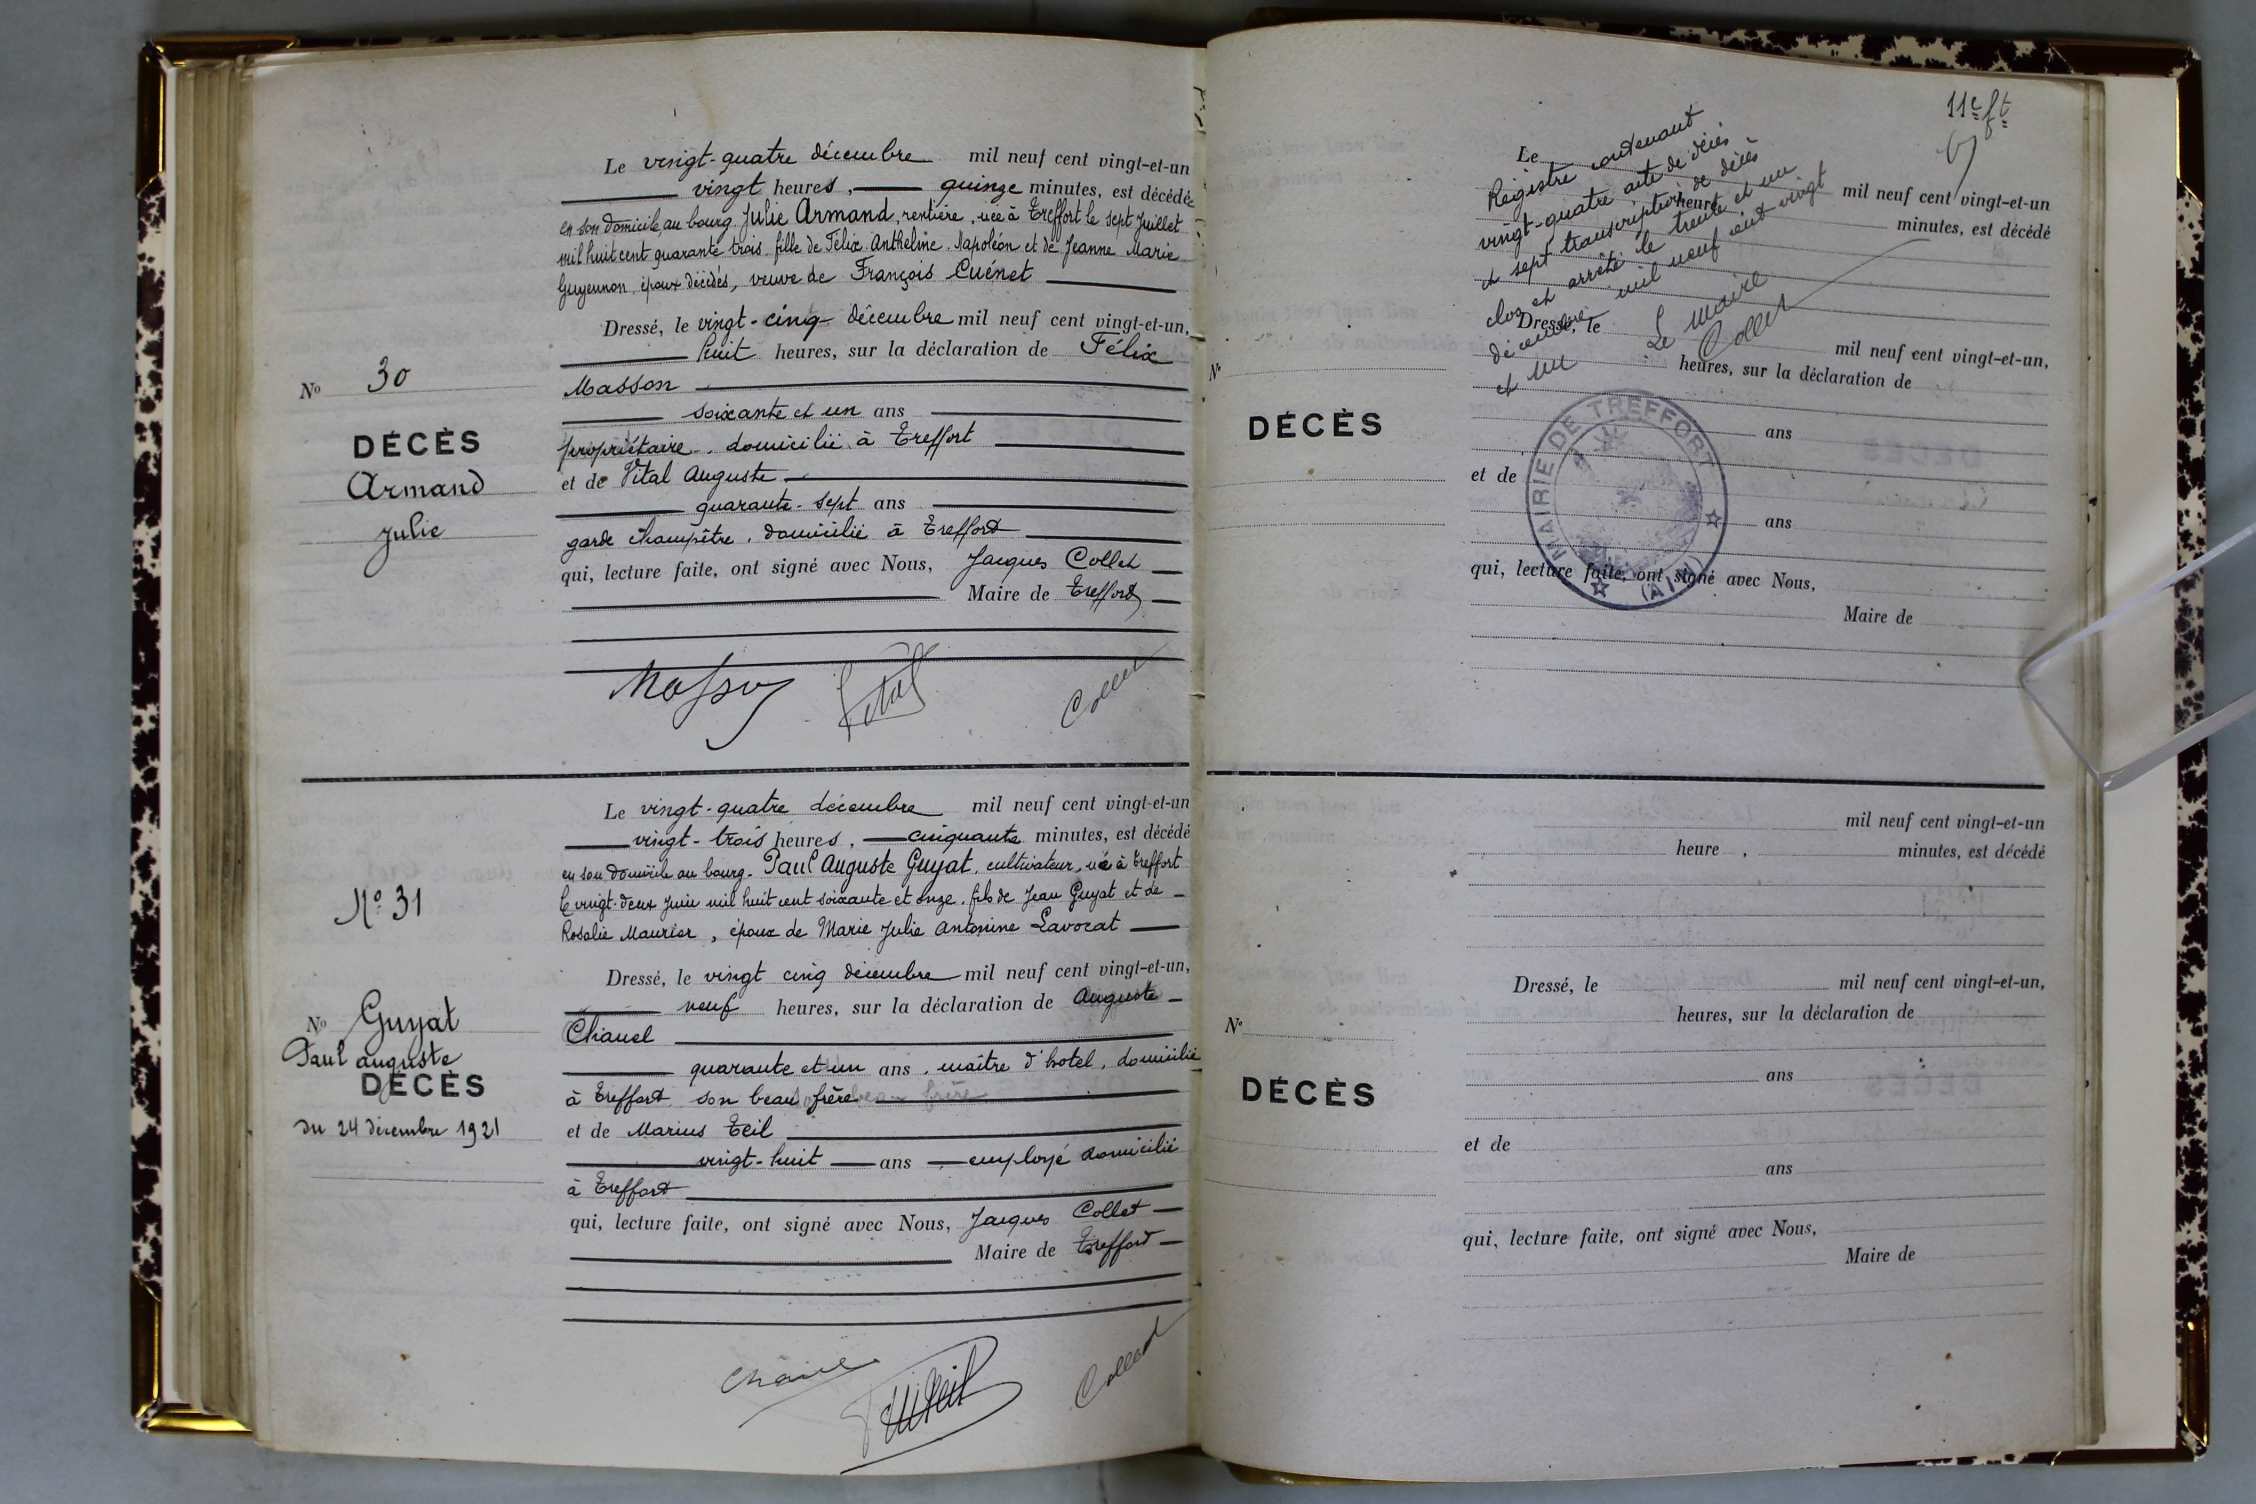 Le vingt-quatre décembre mil neuf cent vingt-et-un
vingt heures, quinze minutes, est décédée
en son domicile, au bourg Julie Armand, rentière, née à Treffort le sept Juillet
mil huit cent quarante trois fille de Félix Anthelme Napoléon et de Jeanne Marie
Guyennon, époux décédés, veuve de François Cuénet
Dressé, le vingt-cinq décembre mil neuf cent vingt-et-un,
huit heures, sur la déclaration de Félix
Masson
soixante et un ans
propriétaire, domicilié à Treffort
et de Vital Auguste
quarante-sept ans
garde champêtre, domicilié à Treffort
qui, lecture faite, ont signé avec Nous, Jacques Collet
Maire de Treffort
No 30
DÉCÈS
Armand
Julie
Masson Vital Collet
Le vingt-quatre décembre mil neuf cent vingt-et-un
vingt-trois heures, cinquante minutes, est décédé
en son domicile au bourg. Paul Auguste Guyat, cultivateur, né à Treffort
le vingt-deux Juin mil huit cent soixante et onze, fils de Jean Guyat et de
Rosalie Maurier, époux de Marie Julie Antonine Lavocat
Dressé, le vingt cinq décembre mil neuf cent vingt-et-un,
neuf heures, sur la déclaration de Auguste
Chanel
quarante et un ans, maître d'hotel, domicilié
à Treffort son beau frère
et de Marius Teil
vingt-huit ans, employé domicilié
à Treffort
qui, lecture faite, ont signé avec Nous, Jacques Collet
Maire de Treffort
No 31
No Guyat
Paul auguste
DÉCÈS
du 24 décembre 1921
Collet
11e ft
Le
mil neuf cent vingt-et-un
heure
minutes, est décédé
Registre contenant
vingt-quatre acte de décès
et sept transcription de décès
clos et arrêté le trente et un
décembre mil neuf cent vingt
et un
Le Maire
Collet
Dressé, le
mil neuf cent vingt-et-un,
heures, sur la déclaration de
No
DÉCÈS
ans
et de
ans
MAIRIE DE TREFFORT
(AIN)
qui, lecture faite, ont signé avec Nous,
Maire de
mil neuf cent vingt-et-un
heure , minutes, est décédé
Dressé, le mil neuf cent vingt-et-un,
heures, sur la déclaration de
No
DÉCÈS
ans
et de
ans
qui, lecture faite, ont signé avec Nous,
Maire de